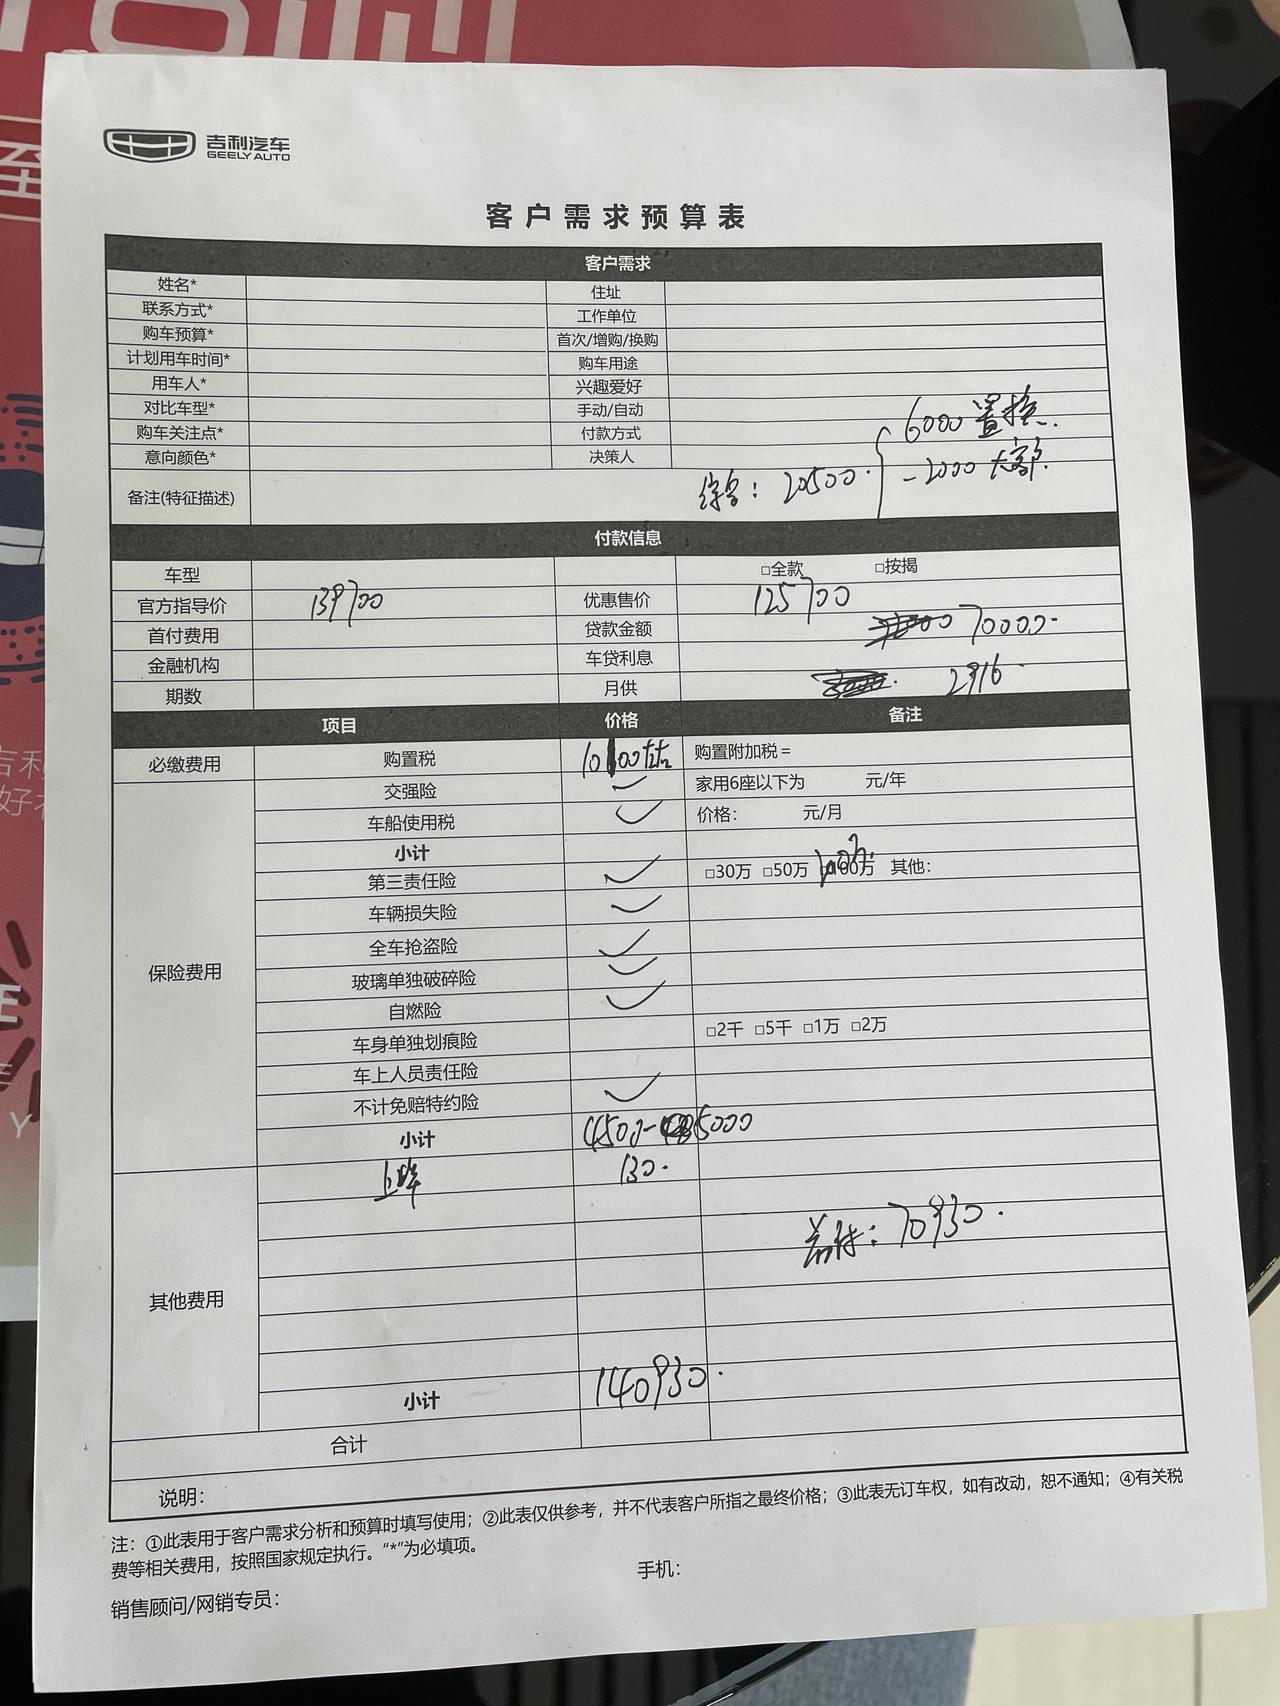 吉利汽车
GEELY AUTO
客户需求预算表
客户需求
姓名* 住址
联系方式* 工作单位
购车预算* 首次/增购/换购
计划用车时间* 购车用途
用车人* 兴趣爱好
对比车型* 手动/自动
购车关注点* 付款方式
意向颜色* 决策人
6000 置换.
-2000 大客
备注(特征描述) 综合: 20500.
付款信息
车型 □全款 □按揭
官方指导价 139700 优惠售价 125700
首付费用 贷款金额 70000.
金融机构 车贷利息
期数 月供 2916.
项目 价格 备注
必缴费用 购置税 购置附加税=
保险费用 交强险 家用6座以下为 元/年
车船使用税 价格: 元/月
小计
第三责任险 □30万 □50万 其他:
车辆损失险
全车抢盗险
玻璃单独破碎险
自燃险
车身单独划痕险 □2千 □5千 □1万 □2万
车上人员责任险
不计免赔特约险
小计 4500- 5000
其他费用 上牌 130.
70930.
小计 140930.
合计
说明:
注: ①此表用于客户需求分析和预算时填写使用; ②此表仅供参考, 并不代表客户所指之最终价格; ③此表无订车权, 如有改动, 恕不通知; ④有关税
费等相关费用, 按照国家规定执行。“*”为必填项。
销售顾问/网销专员: 手机: